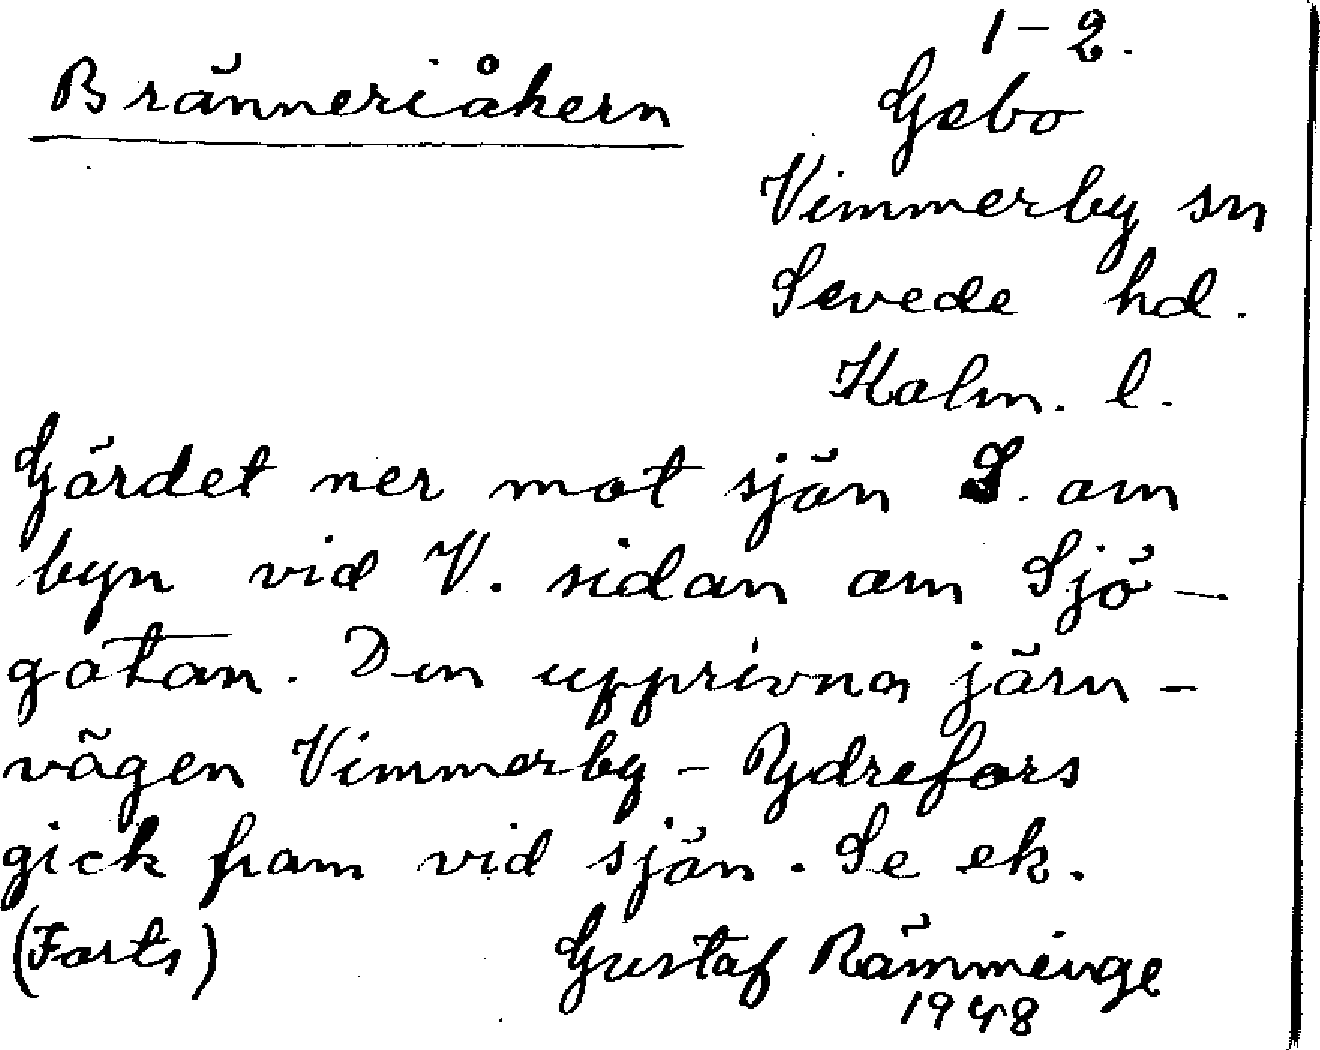 1-2.
Bränneriåkern
Gebo
Vimmerby sn
Sevede hd.
Kalm. l.
Gärdet ner mot sjön S. om
byn vid V. sidan om Sjö-
gatan. Den upprivna järn-
vägen Vimmerby - Ydrefors
gick fram vid sjön. Se ek.
(Forts)
Gustaf Rämminge
1948